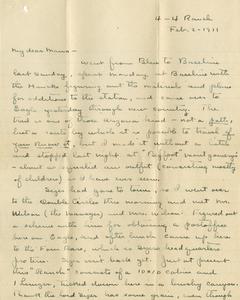 4-4 Ranch
Feb. 2-1911
My dear Mama-
Went from Blue to Baseline
last Sunday, spent Monday at Baseline with
the Hawks figuring out the materials and plans
for additions to the station, and came over to
Eagle yesterday through new country. The
trail is one of those Arizona kind - not a path,
but a route by which it is possible to travel if
you know it, but I made it without a
and stopped last night at
about as a outfit (consisting mostly
of children) as I have ever seen.
had gone to town, so I went over
to the Double Circles this morning and met Mr.
Wilson (the Manager) and Mrs. Wilson. Figured out
a scheme with him for obtaining a Postoffice
here on Eagle, and after lunch came up here
to the Four Bars, which is headquarters
pro tem. isn't back yet. Just at present
this "Ranch" consists of a 10x10 Cabin and
1 , down here in a brushy Canyon.
I the Lord has some grain even though